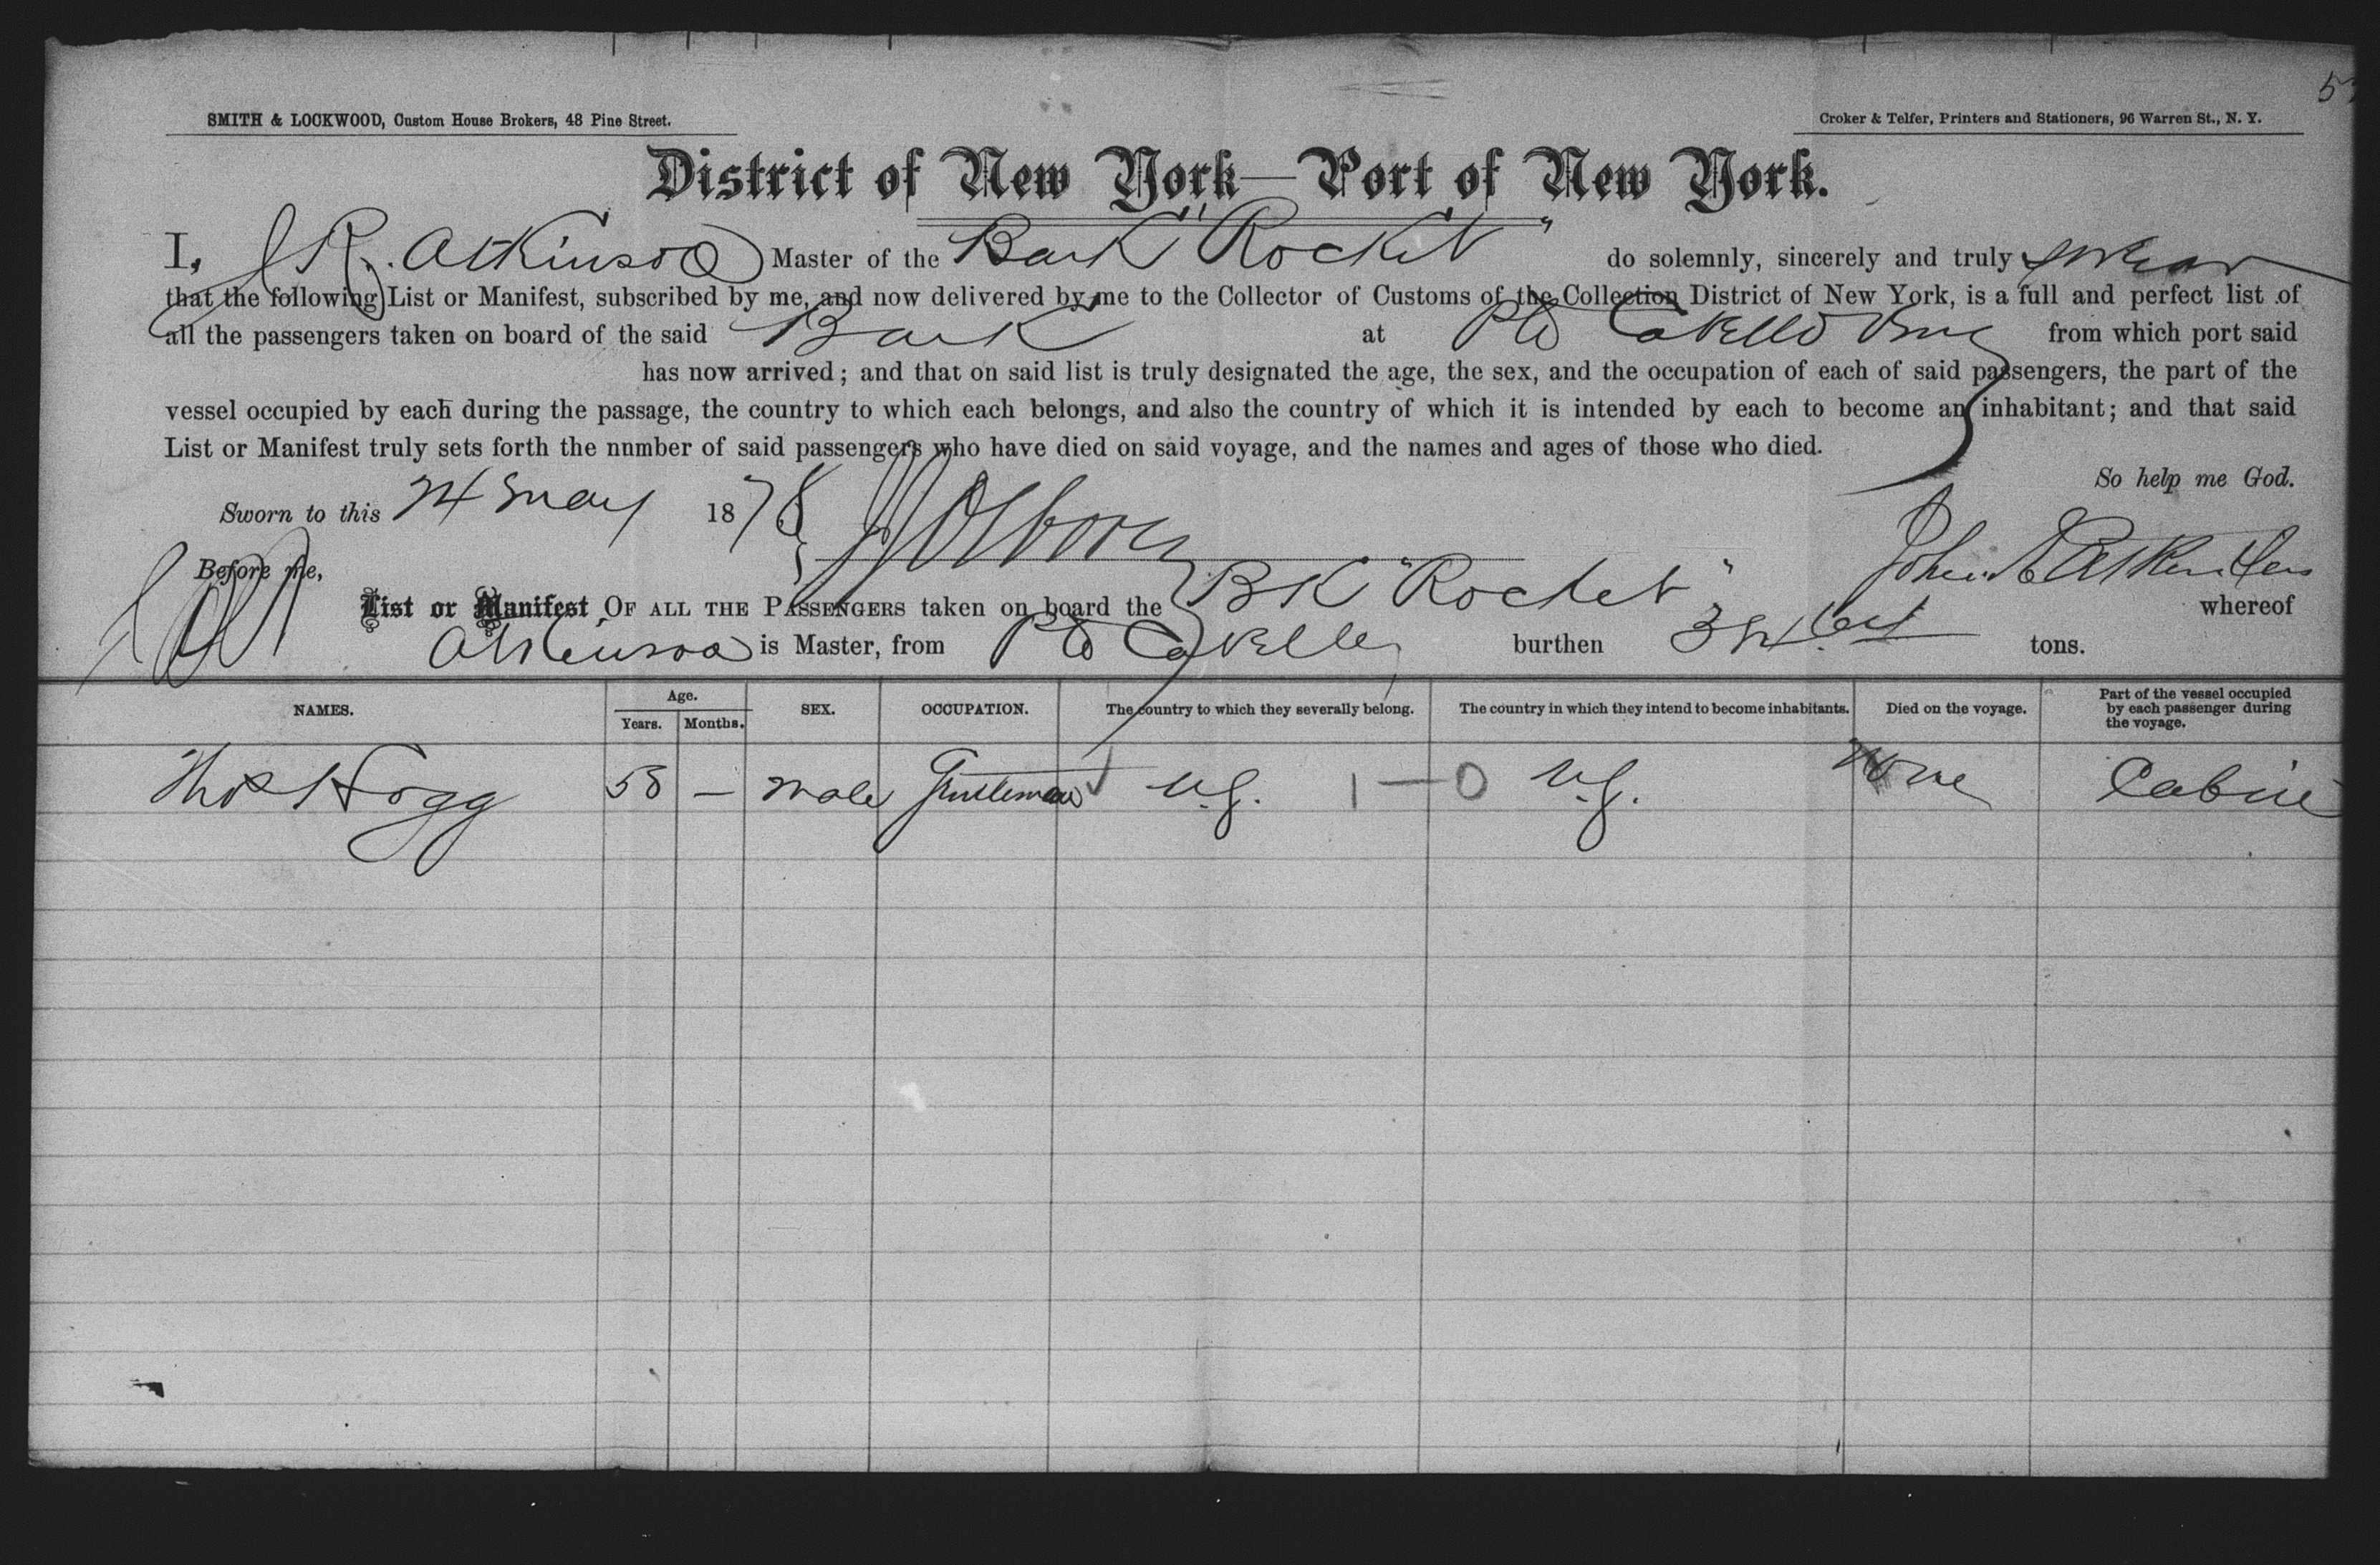 SMITH & LOCKWOOD, Custom House Brokers, 48 Pine Street.
Croker & Telfer, Printers and Stationers, 96 Warren St., N. Y.
District of New York—Port of New York.
I, J R. Atkinson Master of the Bark "Rocket" do solemnly, sincerely and truly swear
that the following List or Manifest, subscribed by me, and now delivered by me to the Collector of Customs of the Collection District of New York, is a full and perfect list of
all the passengers taken on board of the said Bark at Pto Cabello from which port said
has now arrived; and that on said list is truly designated the age, the sex, and the occupation of each of said passengers, the part of the
vessel occupied by each during the passage, the country to which each belongs, and also the country of which it is intended by each to become an inhabitant; and that said
List or Manifest truly sets forth the nnmber of said passengers who have died on said voyage, and the names and ages of those who died.
So help me God.
Sworn to this 24 May 1878
Before me,
List or Manifest OF ALL THE PASSENGERS taken on board the BK "Rocket" whereof
Atkinson is Master, from Pto Cabello burthen tons.
NAMES. Age. Years. Months. SEX. OCCUPATION. The country to which they severally belong. The country in which they intend to become inhabitants. Died on the voyage. Part of the vessel occupied by each passenger during the voyage.
Thos Hogg 58 — Male Gentleman U.S. 1—0 U.S. None Cabin